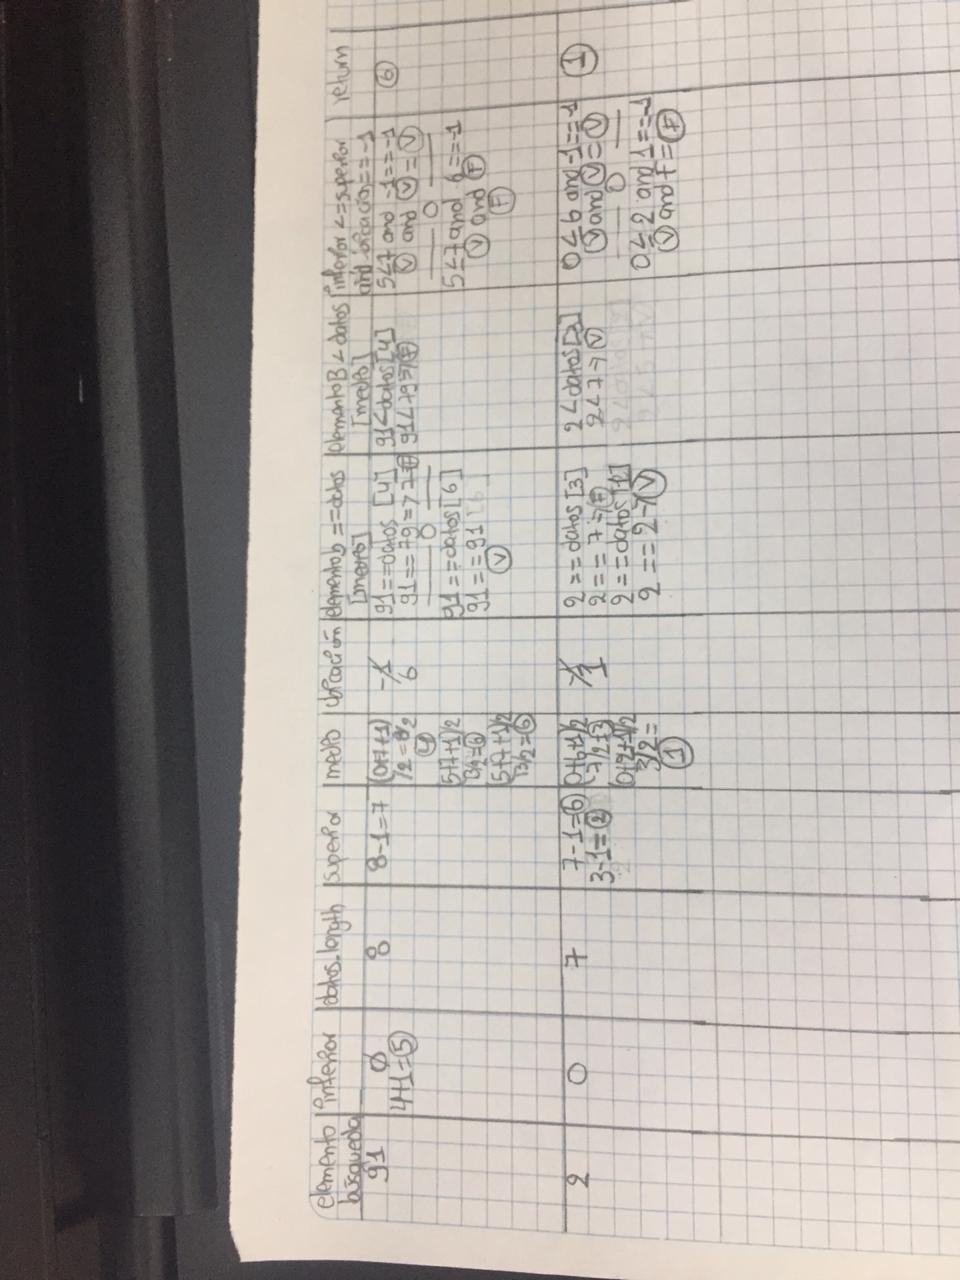 elemento búsqueda
inferior
datos.length
superior
medio
ubicación
elementob == datos [medio]
elementoB < datos [medio]
inferior <= superior and ubicacion == -1
return
91
0
4+1=5
8
8-1=7
(0+7+1)
/2 = 8/2
4
(5+7+1)/2
13/2=6
(5+7+1)/2
13/2=6
-1
6
91==datos [4]
91==79 => F
0
91==datos[6]
91==91
V
91<datos[4]
91<79=>F
5≤7 and -1==-1
V and V = V
0
5≤7 and 6==-1
V and F
F
6
2
0
7
7-1=6
3-1=2
0+6+1/2
7/2=3
(0+2+1)/2
3/2=
1
-1
1
2==datos [3]
2==7 → F
2==datos[1]
2==2→V
2<datos[3]
2<7→V
0≤6 and -1==-1
V and V = V
0
0≤2 and 1==-1
V and F = F
1